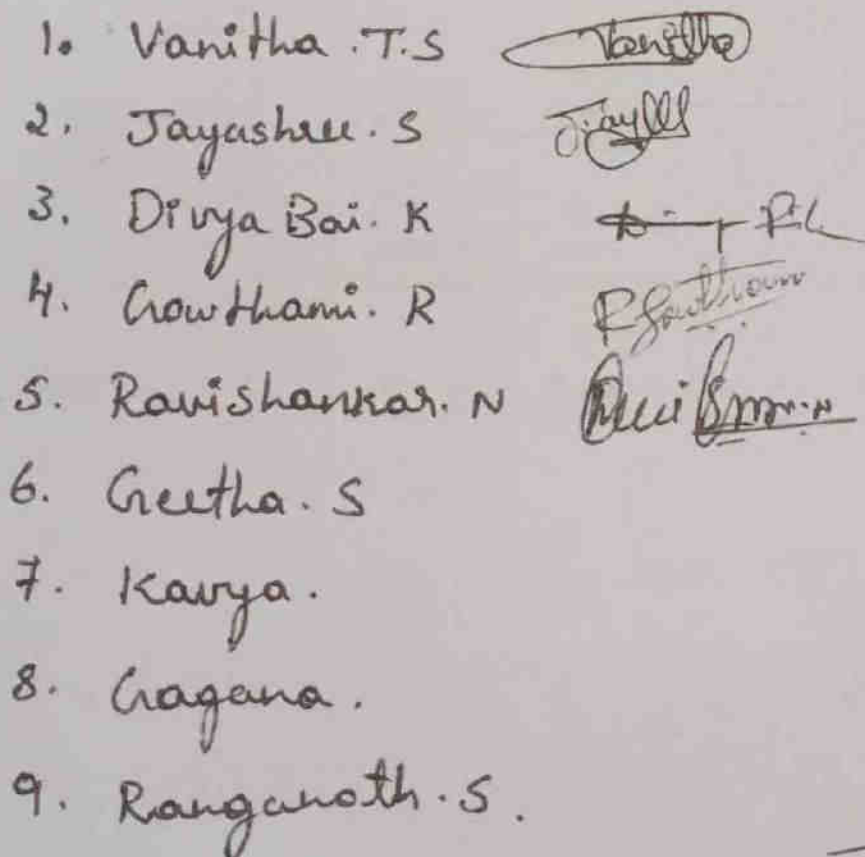 1. Vanitha .T.S Vanitha
2. Jayashree. S
3. Divya Bai. K
4. Gowthami. R R Gowthami
5. Ravishankar. N
6. Geetha. S
7. Kavya.
8. Gagana.
9. Ranganath. S.